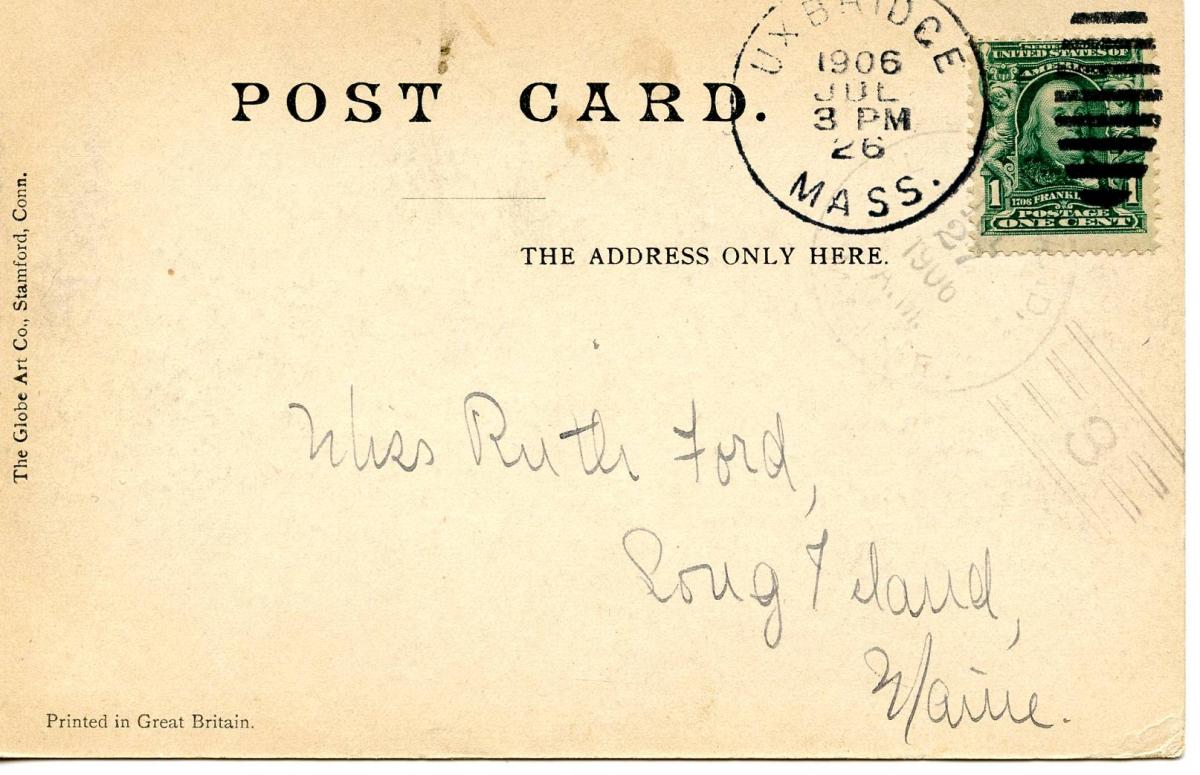 UXBRIDGE
1906
JUL
3 PM
26
MASS.
SERIES
UNITED STATES OF
AMERICA
1 1
1706 FRANKLIN
POSTAGE
ONE CENT
POST CARD.
THE ADDRESS ONLY HERE.
27
1906
A.M.
3
The Globe Art Co., Stamford, Conn.
Miss Ruth Ford,
Long Island,
Maine.
Printed in Great Britain.